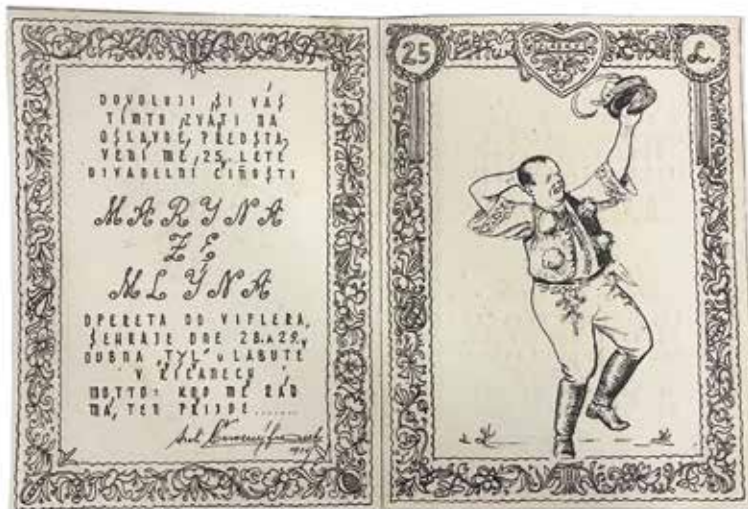 DOVOLUJI SI VÁS
TÍMTO ZVÁTI NA
OSLAVOÉ PŘEDSTA,
VENÍ MÉ, 25. LETÉ
DIVADELNÍ ČINOSTI
MARYNA
ZE
MLÝNA
OPERETA OD VIPLERA,
SEHRAJE DNE 28. A 29.
DUBNA "TYL" U LABUTĚ
V ŘÍČANECH
MOTTO: KDO MĚ RÁD
MÁ, TEN PŘIJDE .......
25
L.